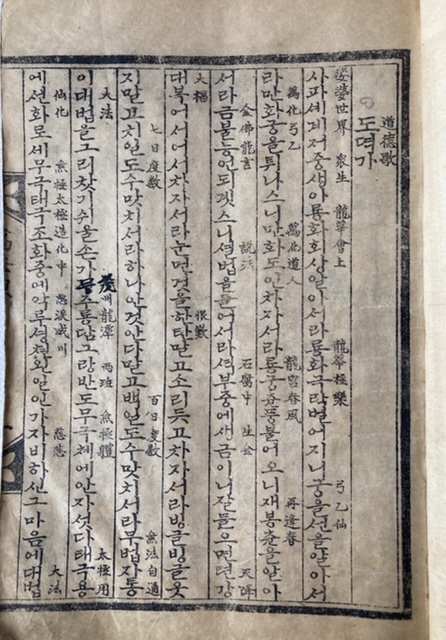 道德歌
도덕가
娑婆世界 衆生 龍華會上 龍華極樂 弓乙仙
사파세계저중생아룡화회상알아서라룡화극락면어지니궁을선을알아서
萬化弓乙 萬化道人 龍宮春風 再逢春
라만화궁을 나스니만화도인차자서라룡궁츈풍불어오니재봉츈을알아
金佛能言 說法 石腐中 生金 天降
서라금불능언되겟스니셜법을들어서라셕부중에생금이니잘들으면텬강
大福 恨歎
대복어서어서차자서라눈면것을한탄말고소리듯고차자서라빙글빙글웃
七日度數 百日度數 無法自通
지말고치일도수맛치서라하나안것안다말고백일도수맛치서라무법자통
大法 龍潭 兩班 無極體 太極用
이대법을그리찻기쉬울손가 룡담그량반도무극체에안자섯다태극용
仙化 無極太極造化中 慈悲 大法
에션화로세무극태극조화중에악루셩쳔 일인가자비하신그마음에대법